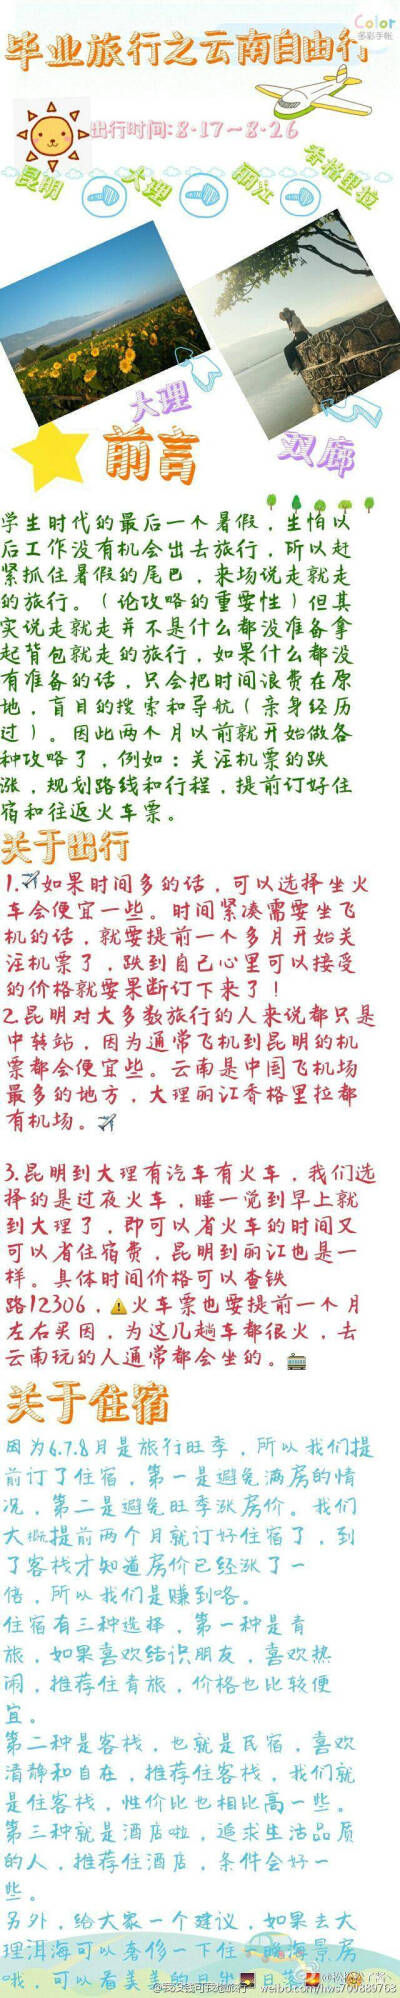 Color
多彩手帐
毕业旅行之云南自由行
出行时间:8.17~8.26
昆明
大理
丽江
香格里拉
大理
双廊
前言
学生时代的最后一个暑假，生怕以
后工作没有机会出去旅行，所以赶
紧抓住暑假的尾巴，来场说走就走
的旅行。（论攻略的重要性）但其
实说走就走并不是什么都没准备拿
起背包就走的旅行，如果什么都没
有准备的话，只会把时间浪费在原
地，盲目的搜索和导航（亲身经历
过）。因此两个月以前就开始做各
种攻略了，例如：关注机票的跌
涨，规划路线和行程，提前订好住
宿和往返火车票。
关于出行
1.✈如果时间多的话，可以选择坐火
车会便宜一些。时间紧凑需要坐飞
机的话，就要提前一个多月开始关
注机票了，跌到自己心里可以接受
的价格就要果断订下来了！
2.昆明对大多数旅行的人来说都只是
中转站，因为通常飞机到昆明的机
票都会便宜些。云南是中国飞机场
最多的地方，大理丽江香格里拉都
有机场。✈
3.昆明到大理有汽车有火车，我们选
择的是过夜火车，睡一觉到早上就
到大理了，即可以省火车的时间又
可以省住宿费，昆明到丽江也是一
样。具体时间价格可以查铁
路12306，⚠火车票也要提前一个月
左右买因，为这几趟车都很火，去
云南玩的人通常都会坐的。🚃
关于住宿
因为6.7.8月是旅行旺季，所以我们提
前订了住宿，第一是避免满房的情
况，第二是避免旺季涨房价。我们
大概提前两个月就订好住宿了，到
了客栈才知道房价已经涨了一
倍，所以我们是赚到咯。
住宿有三种选择，第一种是青
旅，如果喜欢结识朋友，喜欢热
闹，推荐住青旅，价格也比较便
宜。
第二种是客栈，也就是民宿，喜欢
清静和自在，推荐住客栈，我们就
是住客栈，性价比也相比高一些。
第三种就是酒店啦，追求生活品质
的人，推荐住酒店，条件会好一
些。
另外，给大家一个建议，如果去大
理洱海可以奢侈一下住一晚海景房
哦，可以看美美的日出日落
@我没钱可我想旅行
weibo.com/hws709889763